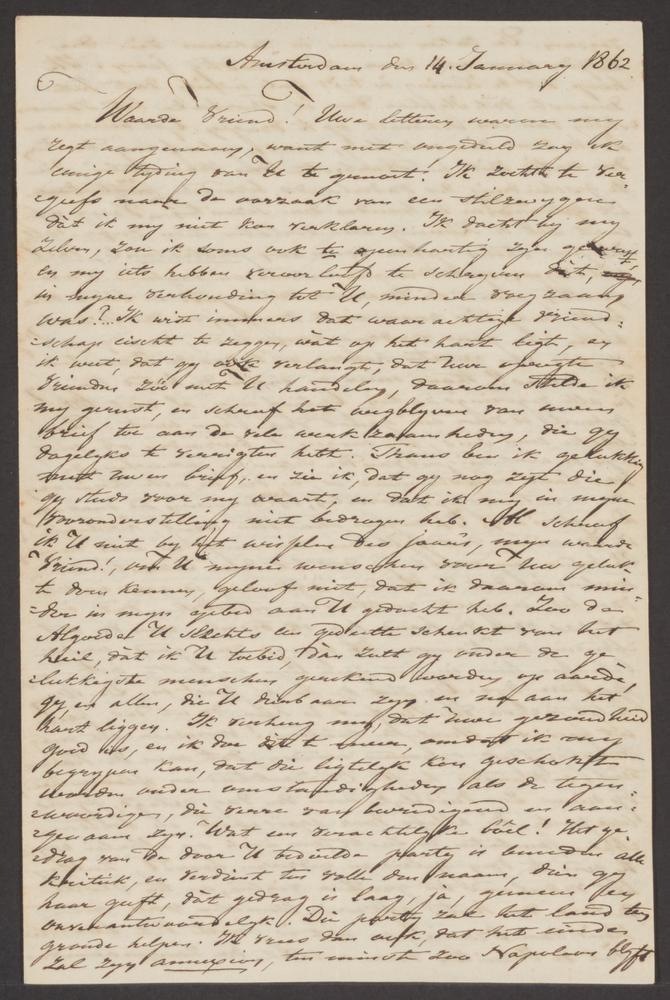 Amsterdam den 14. January 1862
Waarde Vriend! Uwe letteren waren my
regt aangenaam, want met ongeduld zag ik
eenige tyding van U te gemoet. Ik zocht te ver-
=geefs naar de oorzaak van een stilzwygen
dat ik my niet kon verklaren. Ik dacht by my
zelven, zou ik soms ook te openhartig zyn geweest
en my iets hebben veroorloofd te schryven dat,
in myne verhouding tot U, minder voegzaam
was? Ik wist immers dat waarachtige vriend=
=schap eischt te zeggen, wat op het hart ligt, en
ik weet, dat gy ook verlangt, dat uwe opregte
vrienden zóó met U handelen, daarom stelde ik
my gerust, en schreef het wegblyven van uwen
brief toe aan de vele werkzaamheden, die gy
dagelyks te verrigten hebt. Thans ben ik gelukkig
met uwen brief, en zie ik, dat gy nog zyt die
gy steeds voor my waart, en dat ik my in myne
vooronderstelling niet bedrogen heb. Al schreef
ik U niet by het wisselen des jaars, myn waarde
Vriend!, om U myne wenschen voor Uw geluk
te doen kennen, geloof niet, dat ik daarom min=
=der in myn gebed aan U gedacht heb. Zoo de
Algoede U slechts een gedeelte schenkt van het
heil, dat ik U toebid, dan zult gy onder de ge=
=lukkigste menschen gerekend worden op aarde,
gy en allen, die U dierbaar zyn en na aan het
hart liggen. Ik verheug my, dat uwe gezondheid
goed is, en ik doe dit te meer, omdat ik my
begrypen kan, dat die ligtelyk kon geschokt
worden onder omstandigheden als de tegen=
=woordige, die verre van bevredigend en aan=
=genaam zyn. Wat een verachtelyke boel! Het ge=
=drag van de door U bedoelde party is beneden alle
kritiek, en verdient ten volle den naam, dien gy
haar geeft, dat gedrag is laag, ja, gemeen en
onverantwoordelyk. Die party zal het land ten
gronde helpen. Ik vrees dan ook, dat het einde
zal zyn annexion, ten minste zoo Napoleon blyft